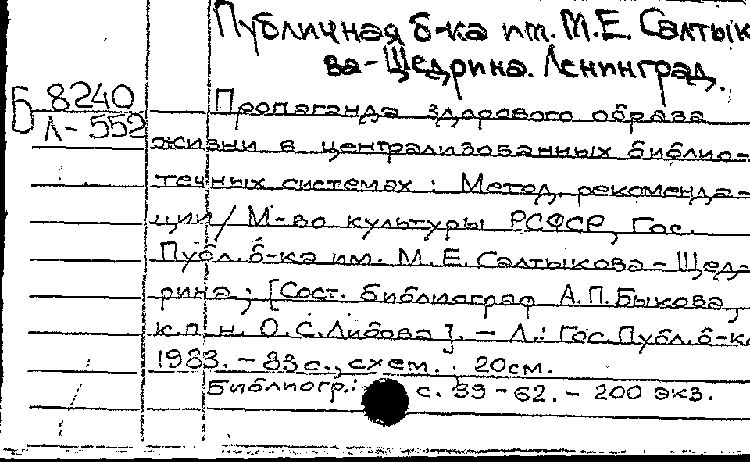 Публичная б-ка им. М.Е. Салтык
ва-Щедрина. Ленинград.
Б 8240
Л-552
Пропаганда здорового образа
жизни в централизованных библио-
течных системах : Метод. рекоменда-
ции / М-во культуры РСФСР, Гос.
Публ. б-ка им. М.Е. Салтыкова-Щед-
рина ; [Сост. библиограф А.П.Быкова,
к.п.н. О.С.Либова]. - Л.: Гос.Публ.б-ка
1983. - 83 с., схем. ; 20см.
Библиогр.: с. - 62. - 200 экз.